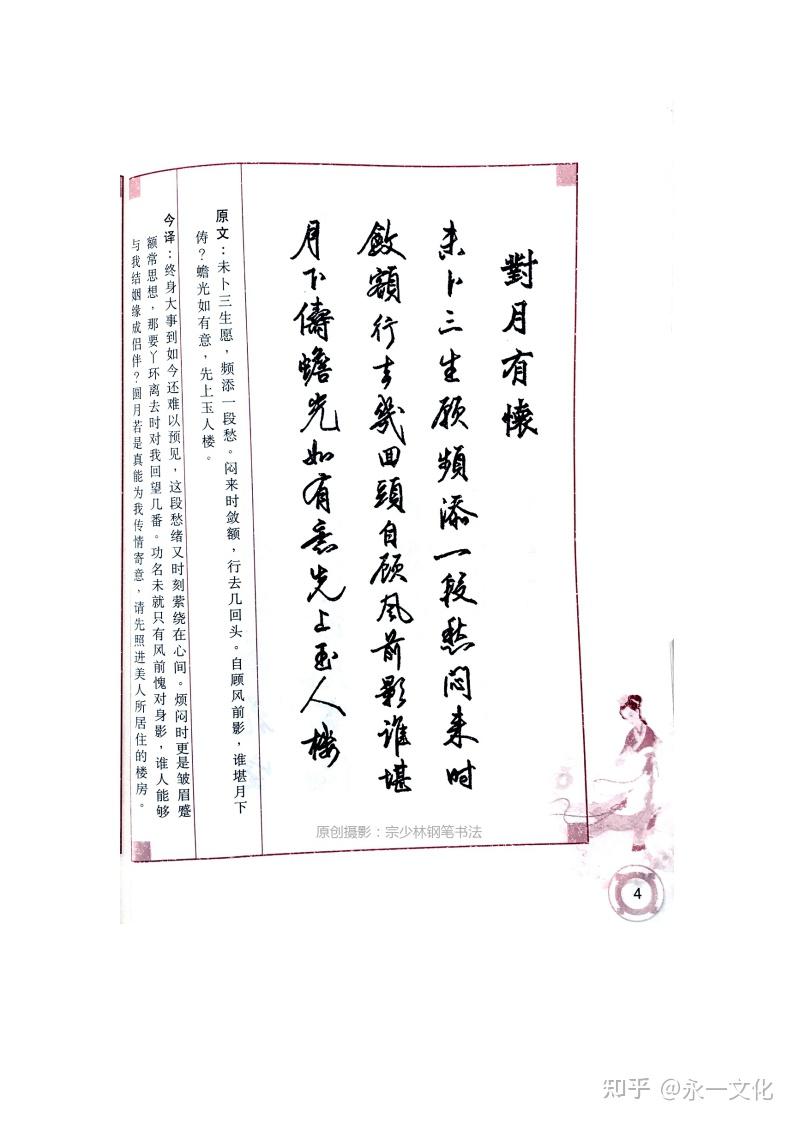 對月有懷
未卜三生愿頻添一段愁悶来时
斂額行去幾回頭自顾风前影谁堪
月下儔蟾光如有意先上玉人楼
原文：未卜三生愿，频添一段愁。闷来时敛额，行去几回头。自顾风前影，谁堪月下
俦？蟾光如有意，先上玉人楼。
今译：终身大事到如今还难以预见，这段愁绪又时刻萦绕在心间。烦闷时更是皱眉蹙
额常思想，那要丫环离去时对我回望几番。功名未就只有风前愧对身影，谁人能够
与我结姻缘成侣伴？圆月若是真能为我传情寄意，请先照进美人所居住的楼房。
原创摄影：宗少林钢笔书法
4
知乎 @永一文化